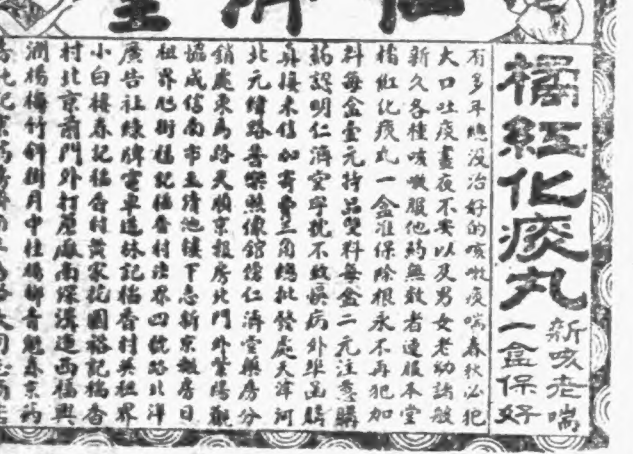 仁濟堂
橘紅化痰丸
新咳老喘
一盒保好
有多年總沒治好的咳嗽痰喘春秋必犯
大口吐痰晝夜不安以及男女老幼諸般
新久各種咳嗽服他藥無效者速服本堂
橘紅化痰丸一盒准保除根永不再犯加
料每盒壹元特品雙料每盒二元注意購
藥認明仁濟堂字號不致誤病外埠函購
真接未信加寄費三角總批發處天津河
北元緯路普樂照像館傍仁濟堂藥房分
銷處東馬路天順京報房北門外紫陽觀
協成信南市玉清池樓下志新京報房日
租界旭街稻記稻香村法界四號路北洋
廣告社綠牌電車道林記稻香村英租界
小白樓春記稻香村黃家花園裕記稻香
村北京前門外打磨廠南深溝達西福興
潤楊梅竹斜街月中桂楊柳青魁春京兩